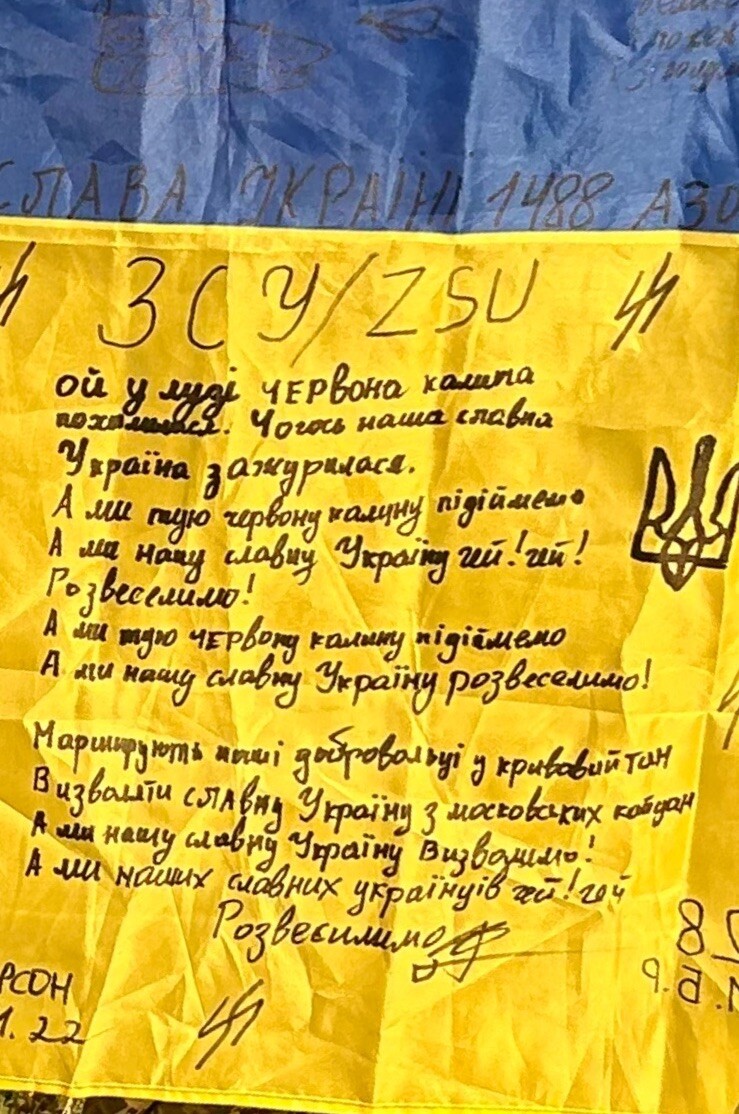 СЛАВА УКРАЇНІ 1488 АЗО
ЗСУ/ZSU
ой у лузі ЧЕРвона калина
похилилася. Чогось наша славна
Україна зажурилася.
А ми тую червону калину підіймемо
А ми нашу славну Україну гей! гей!
Розвеселимо!
А ми тую ЧЕРвону калину підіймемо
А ми нашу славну Україну розвеселимо!
Марширують наші добровольці у кривавий тан
Визволяти славну Україну з московських кайдан
А ми нашу славну Україну Визволимо!
А ми наших славних українців гей! гей
Розвесилимо
РСОН
1.22